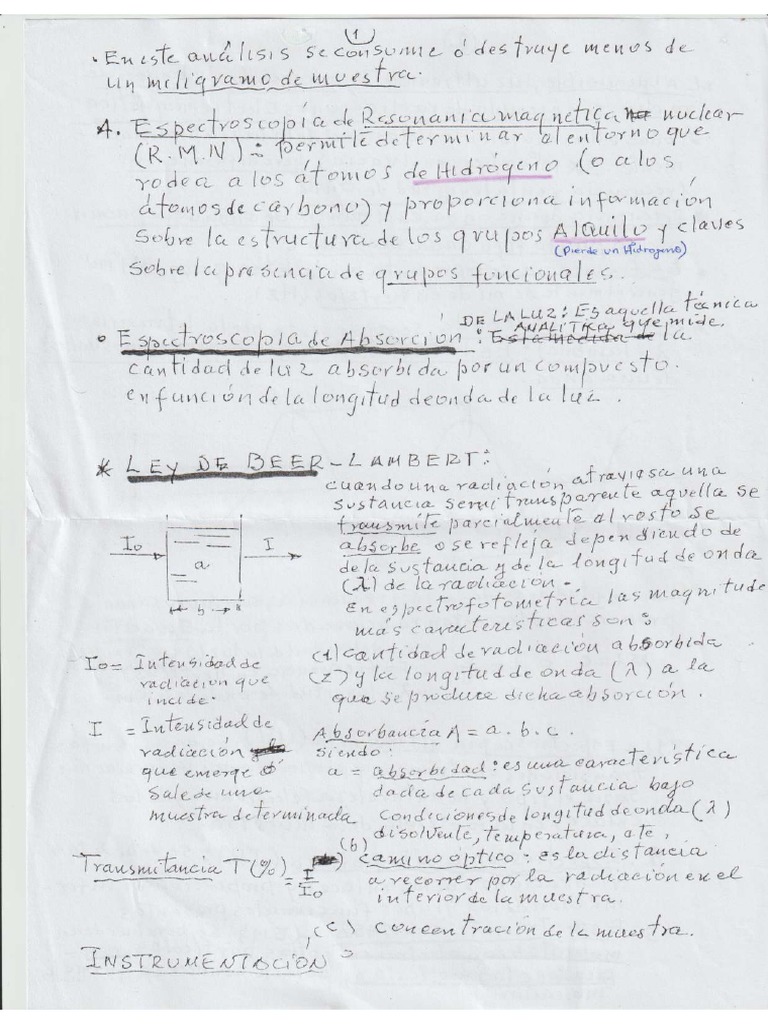 (1)
• En este análisis se consume ó destruye menos de
un miligramo de muestra.
4. Espectroscopía de Resonania magnetica nuclear
(R.M.N) : permite determinar al entorno que
rodea a los átomos de Hidrógeno (o a los
átomos de carbono) y proporciona información
sobre la estructura de los grupos Alquilo y claves
(Pierde un Hidrogeno)
sobre la presencia de grupos funcionales.
DE LA LUZ: Es aquella técnica
ANALITICA que mide
• Espectroscopia de Absorción : Esta medida de la
cantidad de luz absorbida por un compuesto.
en función de la longitud de onda de la luz.
* LEY DE BEER - LAMBERT:
cuando una radiación atraviesa una
sustancia semitransparente aquella se
transmite parcialmente al resto se
absorbe o se refleja dependiendo de
de la sustancia y de la longitud de onda
(λ) de la radiación.
En espectrofotometría las magnitude
más caracteristicas son:
(1) cantidad de radiación absorbida
(2) y la longitud de onda (λ) a la
que se produce dicha absorción.
Io
I
a
b
Io = Intensidad de
radiacion que
incide.
I = Intensidad de
radiación
que emerge ó
sale de una
muestra determinada
Absorbancia A = a.b.c.
siendo:
a = absorbidad : es una característica
dada de cada sustancia bajo
condiciones de longitud de onda (λ)
disolvente, temperatura, ate,
(b) camino optico : es la distancia
a recorrer por la radiación en el
interior de la muestra.
(c) concentración de la muestra.
Transmitancia T (%) = I
Io
INSTRUMENTACIÓN :